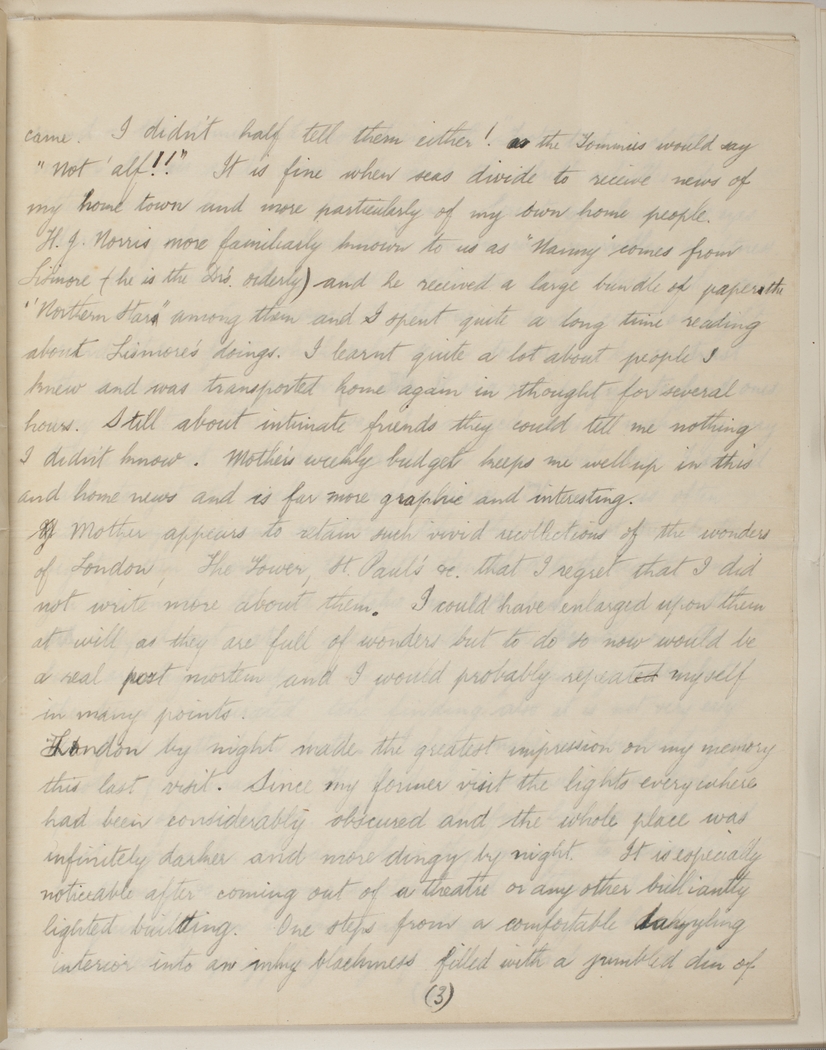 came. I didn't half tell them either! as the Tommies would say
"Not 'alf!!" It is fine when seas divide to receive news of
my home town and more particularly of my own home people.
H. J. Norris more familiarly known to us as "Nanny" comes from
Lismore (he is the Dr's. orderly) and he received a large bundle of papers the
"Northern Stars" among them and I spent quite a long time reading
about Lismore's doings. I learnt quite a lot about people I
knew and was transported home again in thought for several
hours. Still about intimate friends they could tell me nothing
I didn't know. Mother's weekly budget keeps me well up in this
and home news and is far more graphic and interesting.
Mother appears to retain such vivid recollections of the wonders
of London, The Tower, St. Paul's &c. that I regret that I did
not write more about them. I could have enlarged upon them
at will as they are full of wonders but to do so now would be
a real post mortem and I would probably repeated myself
in many points.
London by night made the greatest impression on my memory
this last visit. Since my former visit the lights everywhere
had been considerably obscured and the whole place was
infinitely darker and more dingy by night. It is especially
noticeable after coming out of a theatre or any other brilliantly
lighted building. One steps from a comfortable dazzling
interior into an inky blackness filled with a jumbled din of
(3)